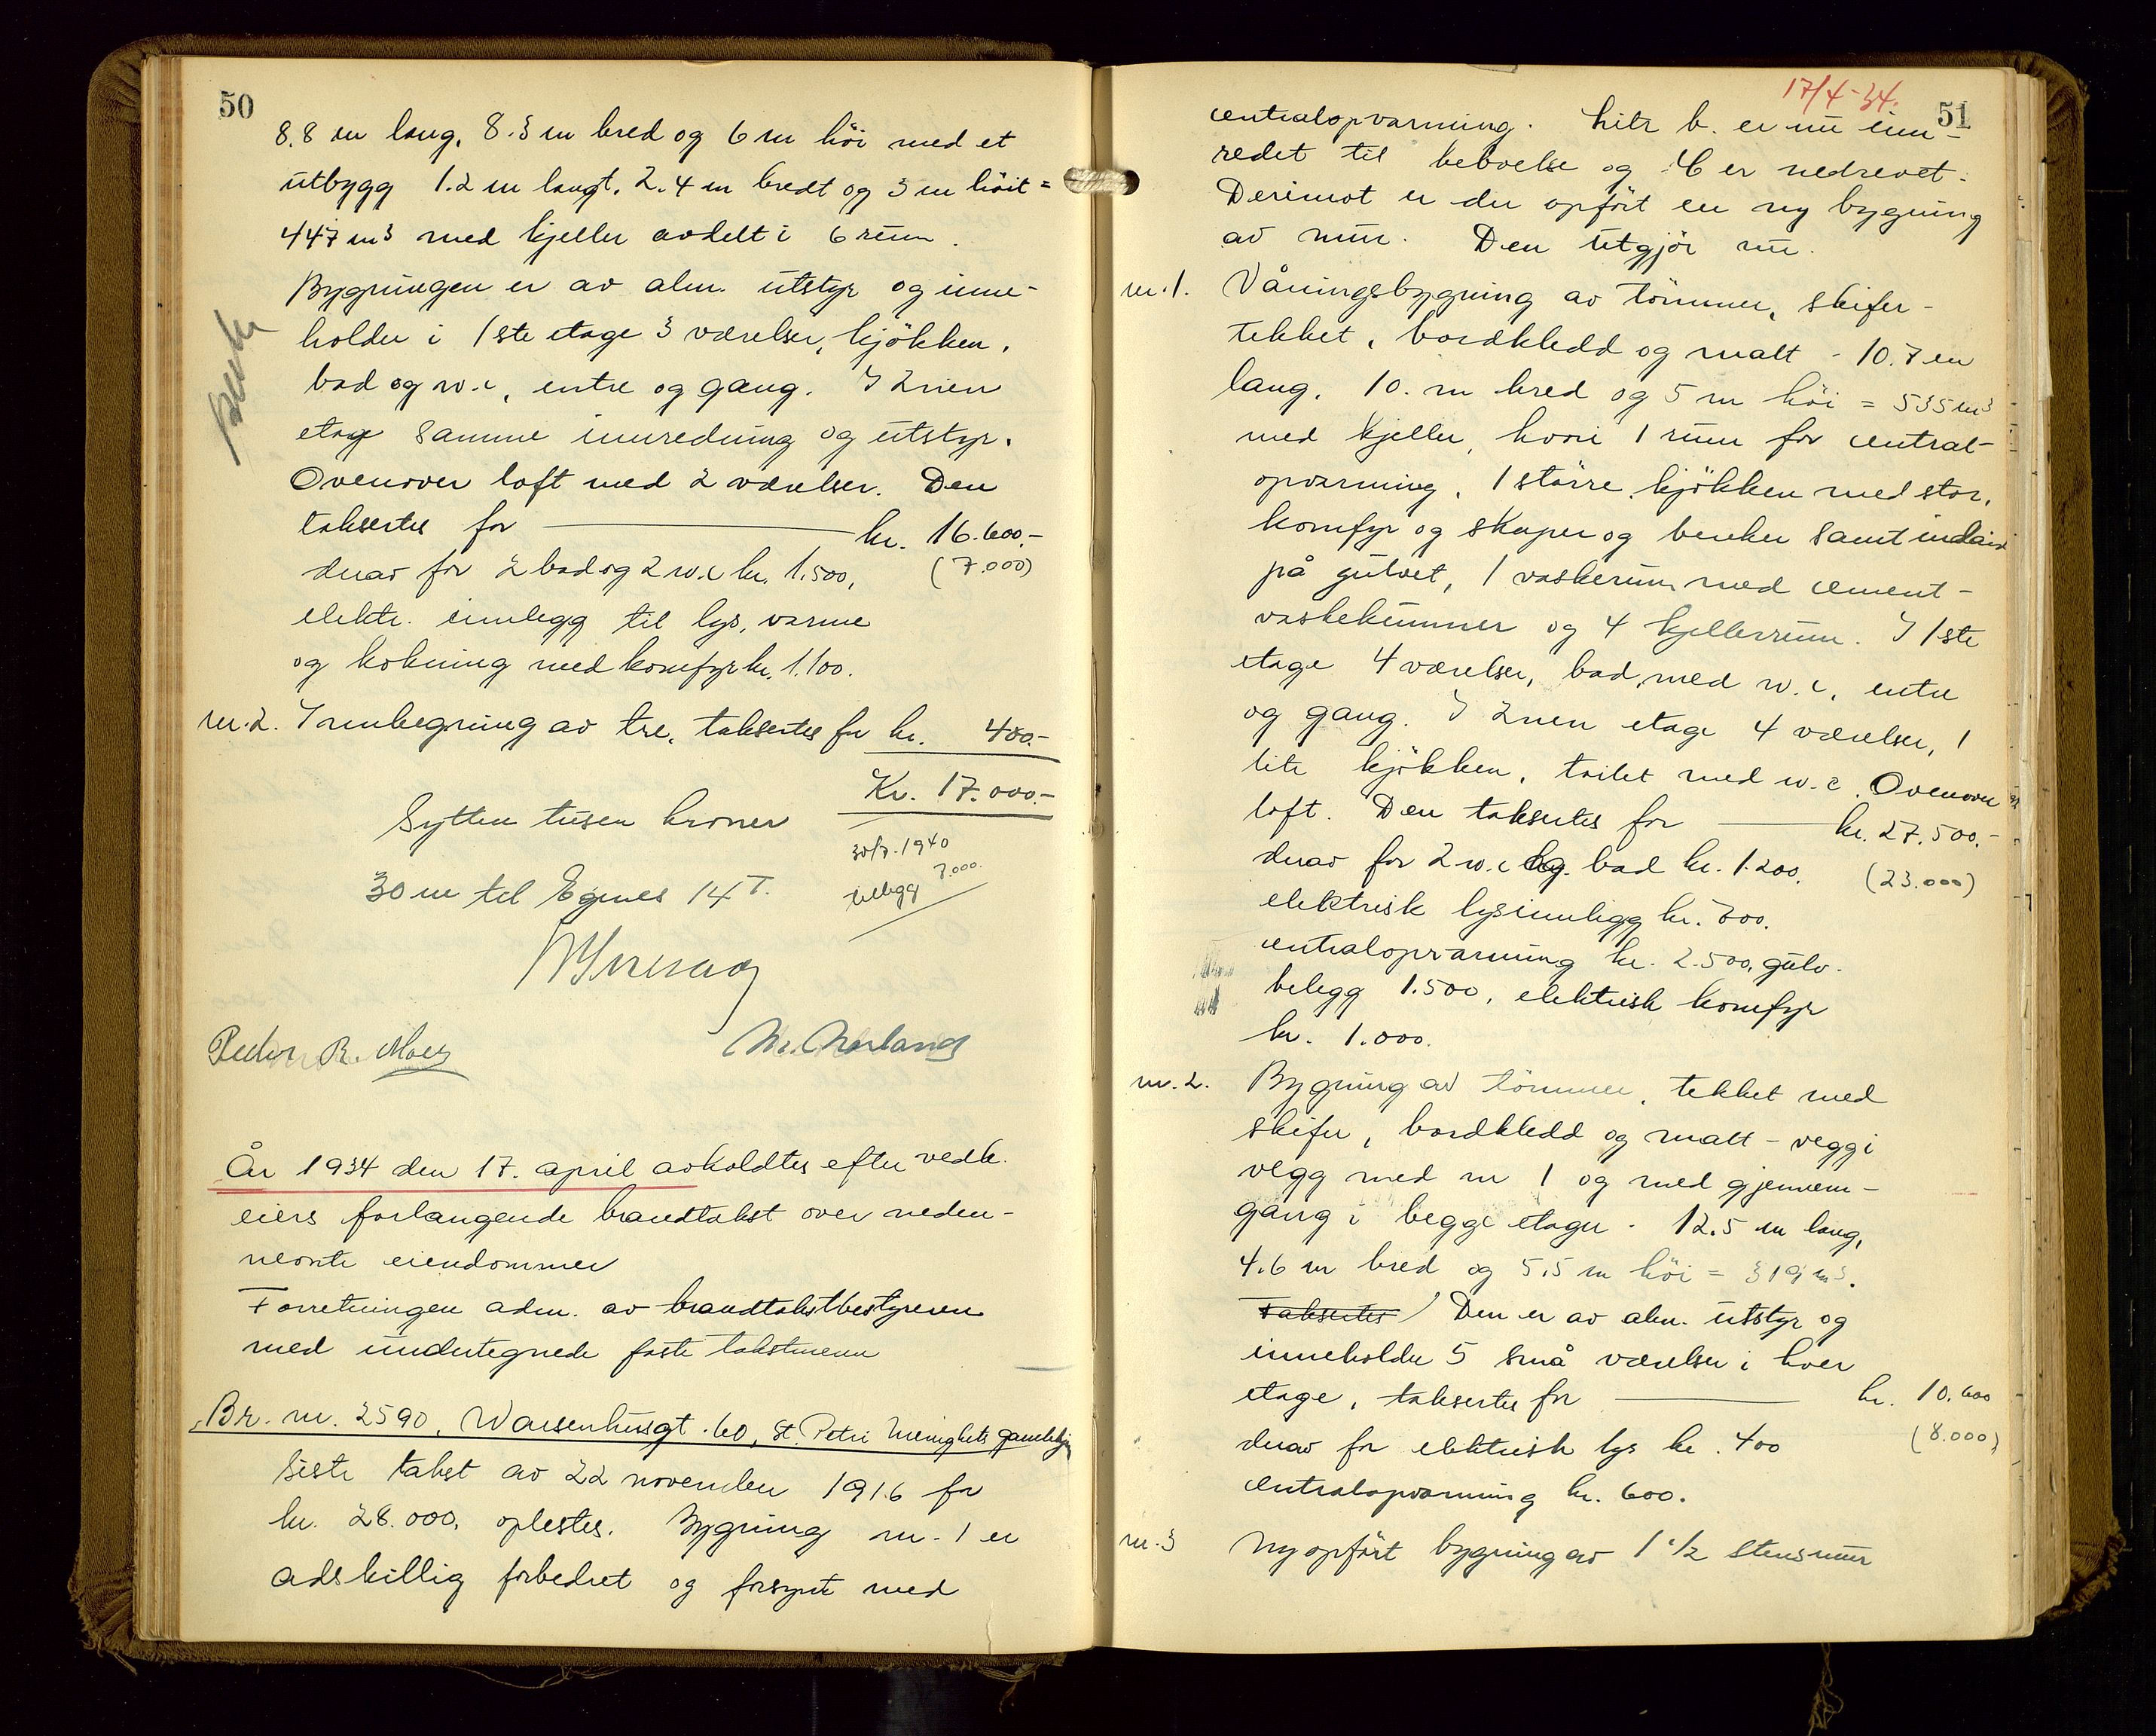 50
8.8 m lang, 8.3 m bred og 6 m höi med et
utbygg 1.2 m langt, 2.4 m bredt og 3 m höit =
447 m3 med kjeller avdelt i 6 rum.
Bygningen er av alm. utstyr og inne-
holder i 1ste etage 3 værelser, kjökken,
bad og w.c, entre og gang. I 2nen
etage samme innredning og utstyr.
Ovenover loft med 2 værelser. Den
takseres for kr. 16.600.-
derav for 2 bad og 2 w.c kr. 1.500, (7.000)
elektr. innlegg til lys, varme
og kokning med komfyr kr. 1.100.
nr. 2. Innhegning av tre, takseres for kr. 400.-
Kr. 17.000.-
Sytten tusen kroner
30/7-1940
tillegg 7.000.
30 m til Egnes 14 T.
Peder R. Moen
M. Norland
År 1934 den 17. april avholdtes efter vedk.
eiers forlangende brandtakst over neden-
nevnte eiendommer
Forretningen adm. av brandtakstbestyreren
med undertegnede faste takstmenn
Br. nr. 2590, Waisenhusgt. 60, St. Petri menighets gamlehjem
Siste takst av 22 november 1916 for
kr. 28.000, oplestes. Bygning nr. 1 er
adskillig forbedret og forsynt med
17/4-34.
51
centralopvarming. Litr b. er nu inn-
redet til beboelse og C er nedrevet.
Derimot er der opfört en ny bygning
av mur. Den utgjör nu.
nr. 1. Våningsbygning av tömmer, skifer-
tekket, bordkledd og malt - 10.7 m
lang, 10. m bred og 5 m höi = 535 m3
med kjeller, hvori 1 rum for central-
opvarming, 1 större kjökken med stor,
komfyr og skaper og benker samt
på gulvet, 1 vaskerum med cement-
vaskekummer og 4 kjellerrum. I 1ste
etage 4 værelser, bad med w.c, entre
og gang. I 2nen etage 4 værelser, 1
lite kjökken, toilet med w.c. Ovenover
loft. Den takseres for kr. 27.500.-
derav for 2 w.c og bad kr. 1.200. (23.000)
elektrisk lysinnlegg kr. 700.
centralopvarming kr. 2.500, gulv-
belegg 1.500, elektrisk komfyr
kr. 1.000.
nr. 2. Bygning av tömmer, tekket med
skifer, bordkledd og malt - vegg i
vegg med nr 1 og med gjennem-
gang i begge etager. 12.5 m lang,
4.6 m bred og 5.5 m höi = 319 m3.
Takseres Den er av alm. utstyr og
inneholder 5 små værelser i hver
etage, takseres for kr. 10.600
derav for elektrisk lys kr. 400 (8.000)
centralopvarming kr. 600.
nr. 3 Ny opfört bygning av 1 1/2 stens mur